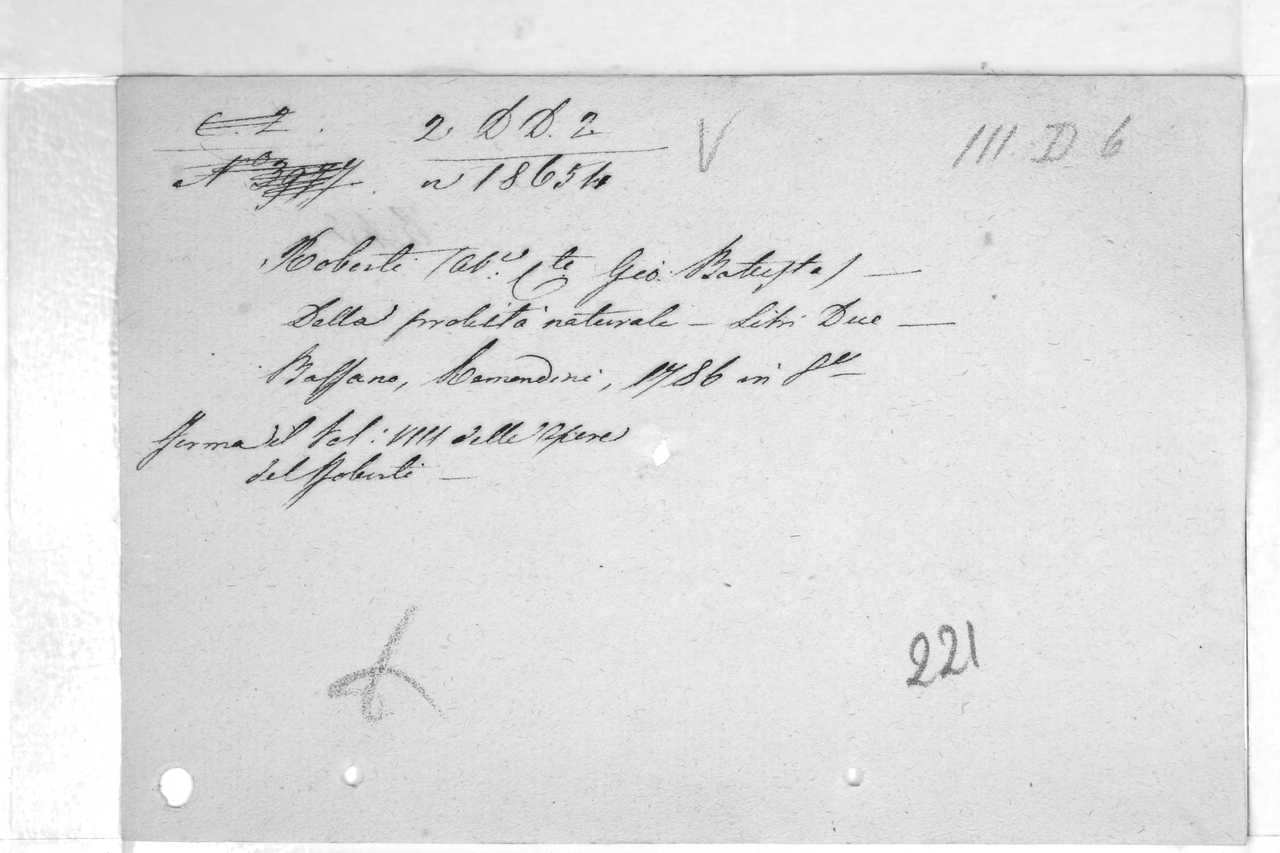 C. 2. 2. D D. 2 V III D 6
N.ro n 18654
Roberti (Ab.e C.te Gio. Battista) —
Della probità naturale — Libri Due —
Bassano, Remondini, 1786 in 8.o
Forma il Vol: VIII delle Opere
del Roberti —
221